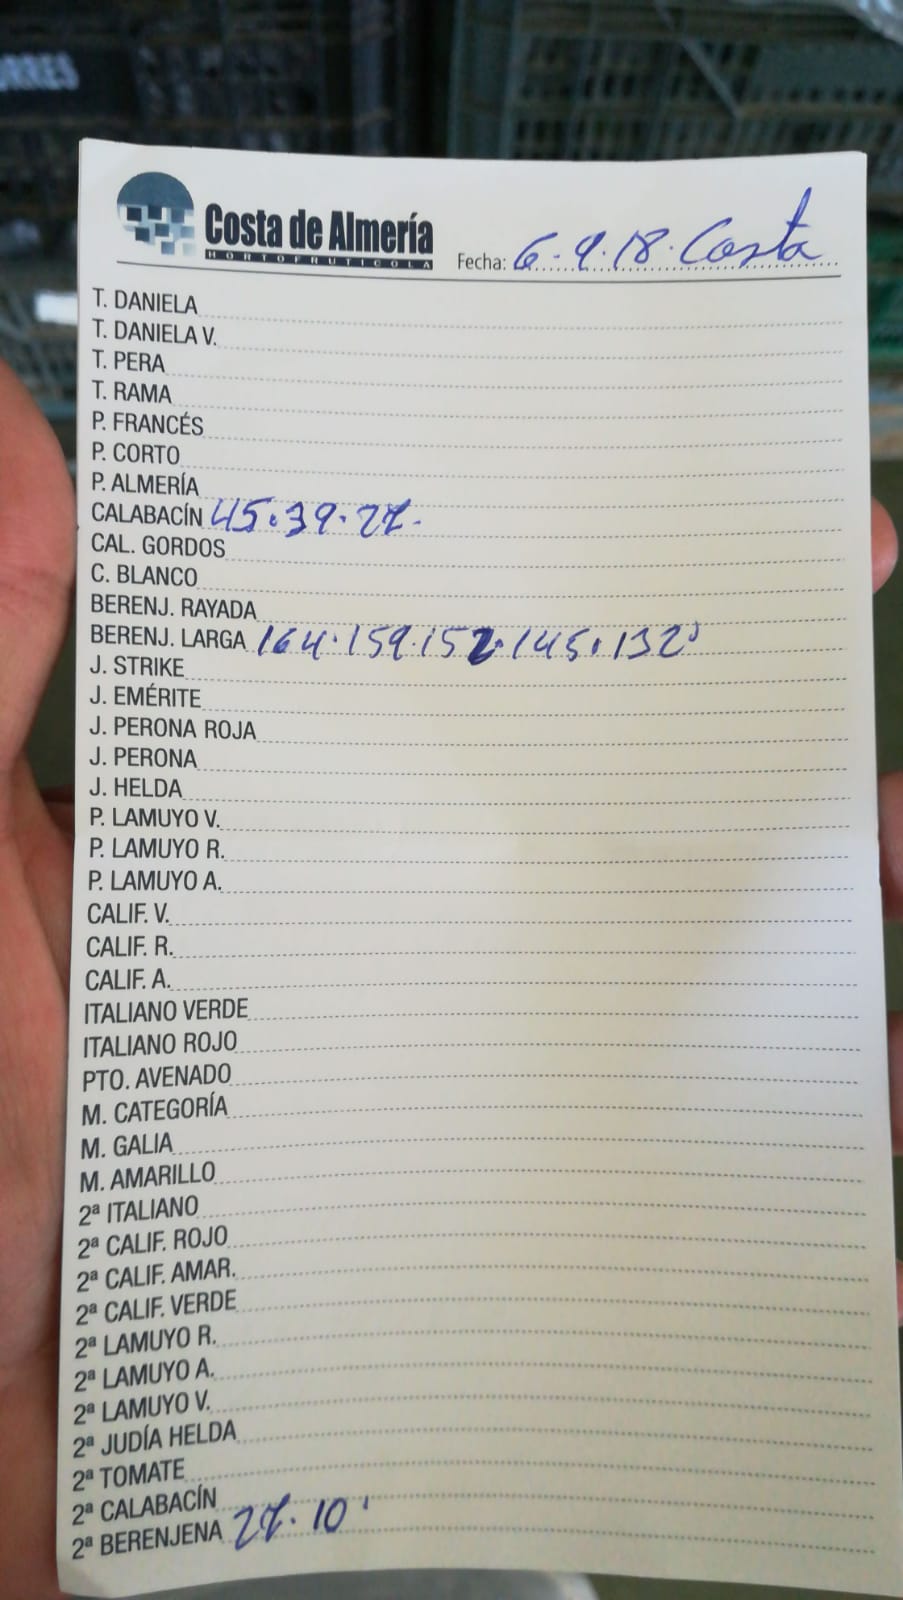 URRES
Costa de Almería
HORTOFRUTICOLA
Fecha: 6.9.18. Costa
T. DANIELA
T. DANIELA V.
T. PERA
T. RAMA
P. FRANCÉS
P. CORTO
P. ALMERÍA
CALABACÍN 45.39.27.
CAL. GORDOS
C. BLANCO
BERENJ. RAYADA
BERENJ. LARGA 164.159.152.145.132'
J. STRIKE
J. EMÉRITE
J. PERONA ROJA
J. PERONA
J. HELDA
P. LAMUYO V.
P. LAMUYO R.
P. LAMUYO A.
CALIF. V.
CALIF. R.
CALIF. A.
ITALIANO VERDE
ITALIANO ROJO
PTO. AVENADO
M. CATEGORÍA
M. GALIA
M. AMARILLO
2ª ITALIANO
2ª CALIF. ROJO
2ª CALIF. AMAR.
2ª CALIF. VERDE
2ª LAMUYO R.
2ª LAMUYO A.
2ª LAMUYO V.
2ª JUDÍA HELDA
2ª TOMATE
2ª CALABACÍN
2ª BERENJENA 27.10'